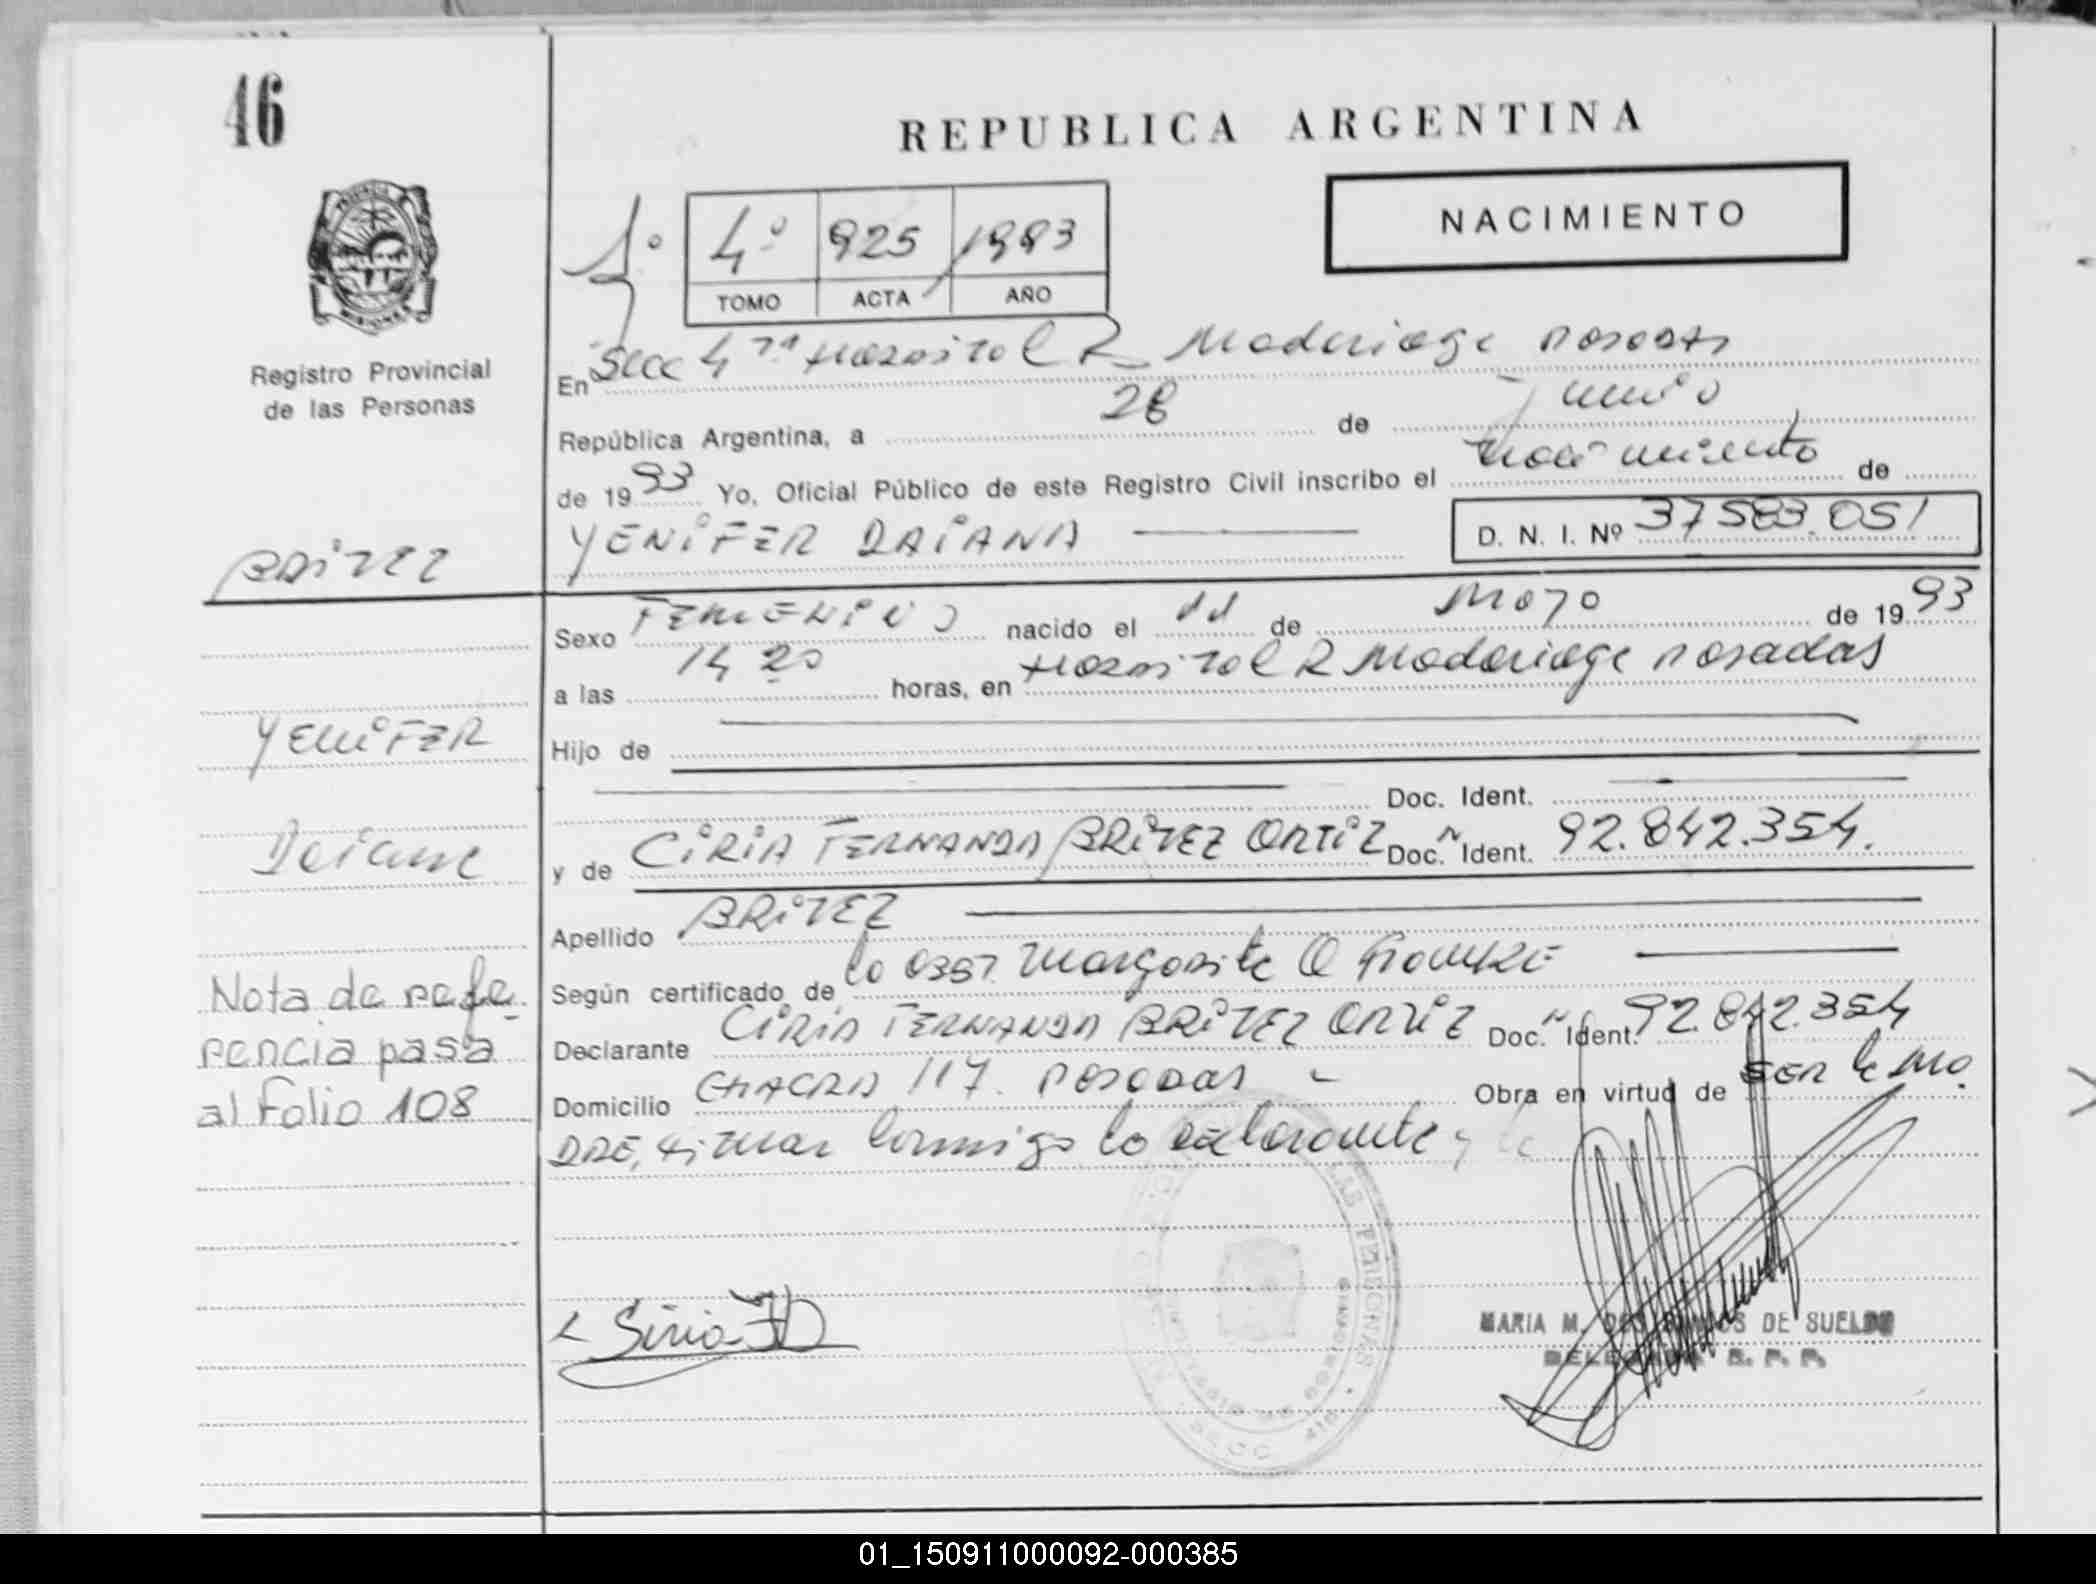 46
REPUBLICA ARGENTINA
NACIMIENTO
1º 4º 925 1993
TOMO ACTA AÑO
MISIONES
Registro Provincial
de las Personas
En Secc 4ta Hospital R Madariaga Posadas
República Argentina, a 28 de Junio
de 1993 Yo, Oficial Público de este Registro Civil inscribo el Nacimiento de
YENIFER DAIANA D. N. I. Nº 37583.051
BRITEZ
Sexo FEMENINO nacido el 11 de Mayo de 1993
a las 14 20 horas, en Hospital R Madariaga Posadas
YENIFER
Hijo de
Doc. Ident.
Daiana
y de CIRIA FERNANDA BRITEZ ORTIZ Doc. Ident. 92.842.354.
Apellido BRITEZ
Nota de refe-
rencia pasa
al Folio 108
Según certificado de la Obst. Margarita O
Declarante CIRIA FERNANDA BRITEZ ORTIZ Doc. Ident. 92.842.354
Domicilio CHACRA 117. POSADAS Obra en virtud de SER la MA
DRE, firman conmigo la declarante y la
LAS PERSONAS
MARIA M. DOS DE SUELDO
DELEGADA R. P. P.
01_150911000092-000385